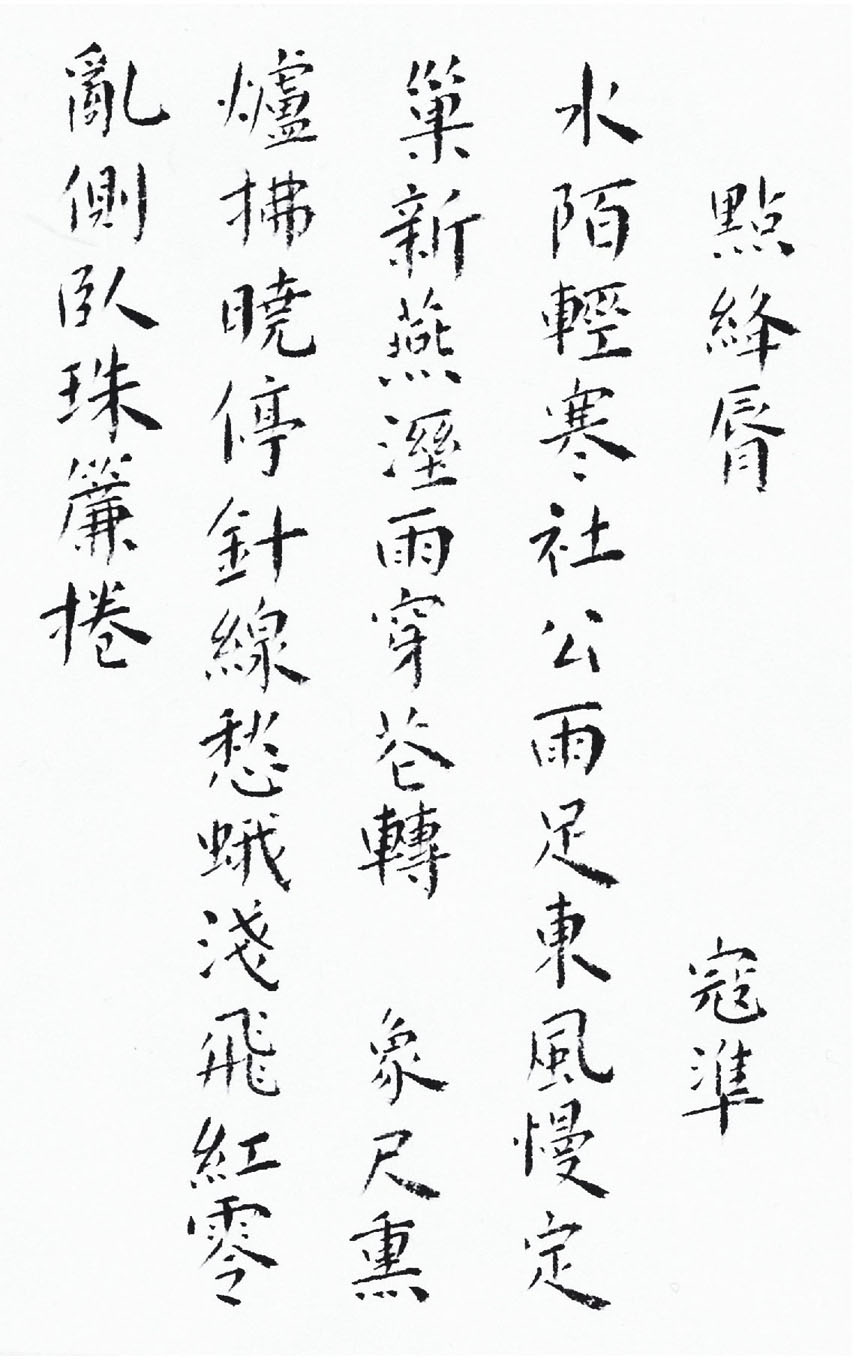 點絳脣 寇準
水陌輕寒社公雨足東風慢定
巢新燕溼雨穿花轉 象尺熏
爐拂曉停針線愁蛾淺飛紅零
亂側臥珠簾捲